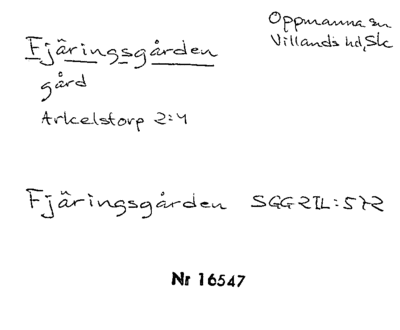 Oppmanna sn
Villands hd, Sk
Fjäringsgården
gård
Arkelstorp 2:4
Fjäringsgården SGG2IL:572
Nr 16547